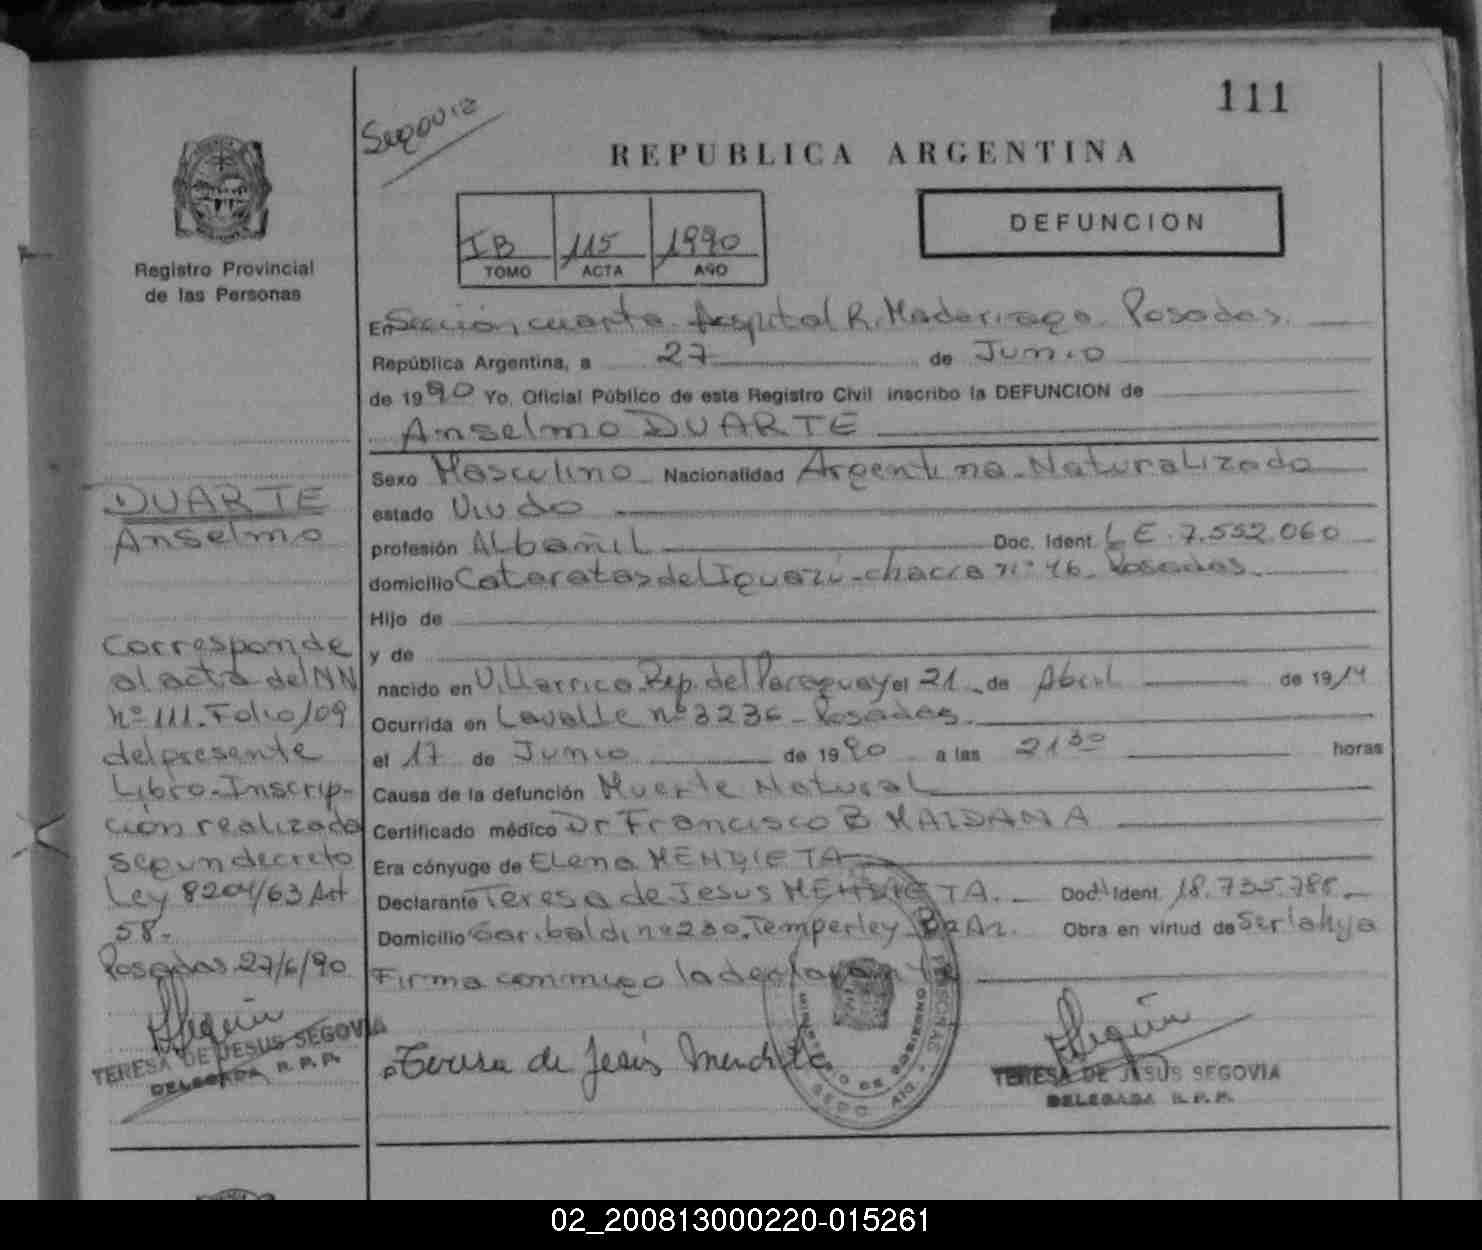 111
Segovia
REPUBLICA ARGENTINA
Registro Provincial
de las Personas
IB 115 1990
TOMO ACTA AÑO
DEFUNCION
En Sección cuarta Hospital R. Madariaga. Posadas.
República Argentina, a 27 de Junio
de 1990 Yo, Oficial Público de este Registro Civil inscribo la DEFUNCION de
Anselmo DUARTE
Sexo Masculino Nacionalidad Argentina-Naturalizado
estado Viudo
profesión Albañil Doc. Ident. LE. 7.552.060
domicilio Cataratas del Iguazú-chacra nº 46-Posadas.
Hijo de
y de
nacido en Villarrica. Rep. del Paraguay el 21 de Abril de 1914
Ocurrida en Lavalle nº 3236-Posadas.
el 17 de Junio de 1990 a las 21 30 horas
Causa de la defunción Muerte Natural
Certificado médico Dr Francisco B MAIDANA
Era cónyuge de Elena MENDIETA
Declarante Teresa de Jesus MENDIETA. Doc. Ident. 18.735.785
Domicilio Garibaldi nº 230. Temperley Bs As. Obra en virtud de Ser la hija
Firma conmigo la declarante
Teresa de Jesús Mendieta
MINISTERIO DE GOBIERNO
TERESA DE JESUS SEGOVIA
DELEGADA R.P.P.
DUARTE
Anselmo
Corresponde
al acta del NN
nº 111. Folio 109
del presente
Libro-Inscrip-
ción realizada
segun decreto
Ley 8204/63 Art
58.
Posadas 27/6/90
TERESA DE JESUS SEGOVIA
DELEGADA R.P.P.
02_200813000220-015261